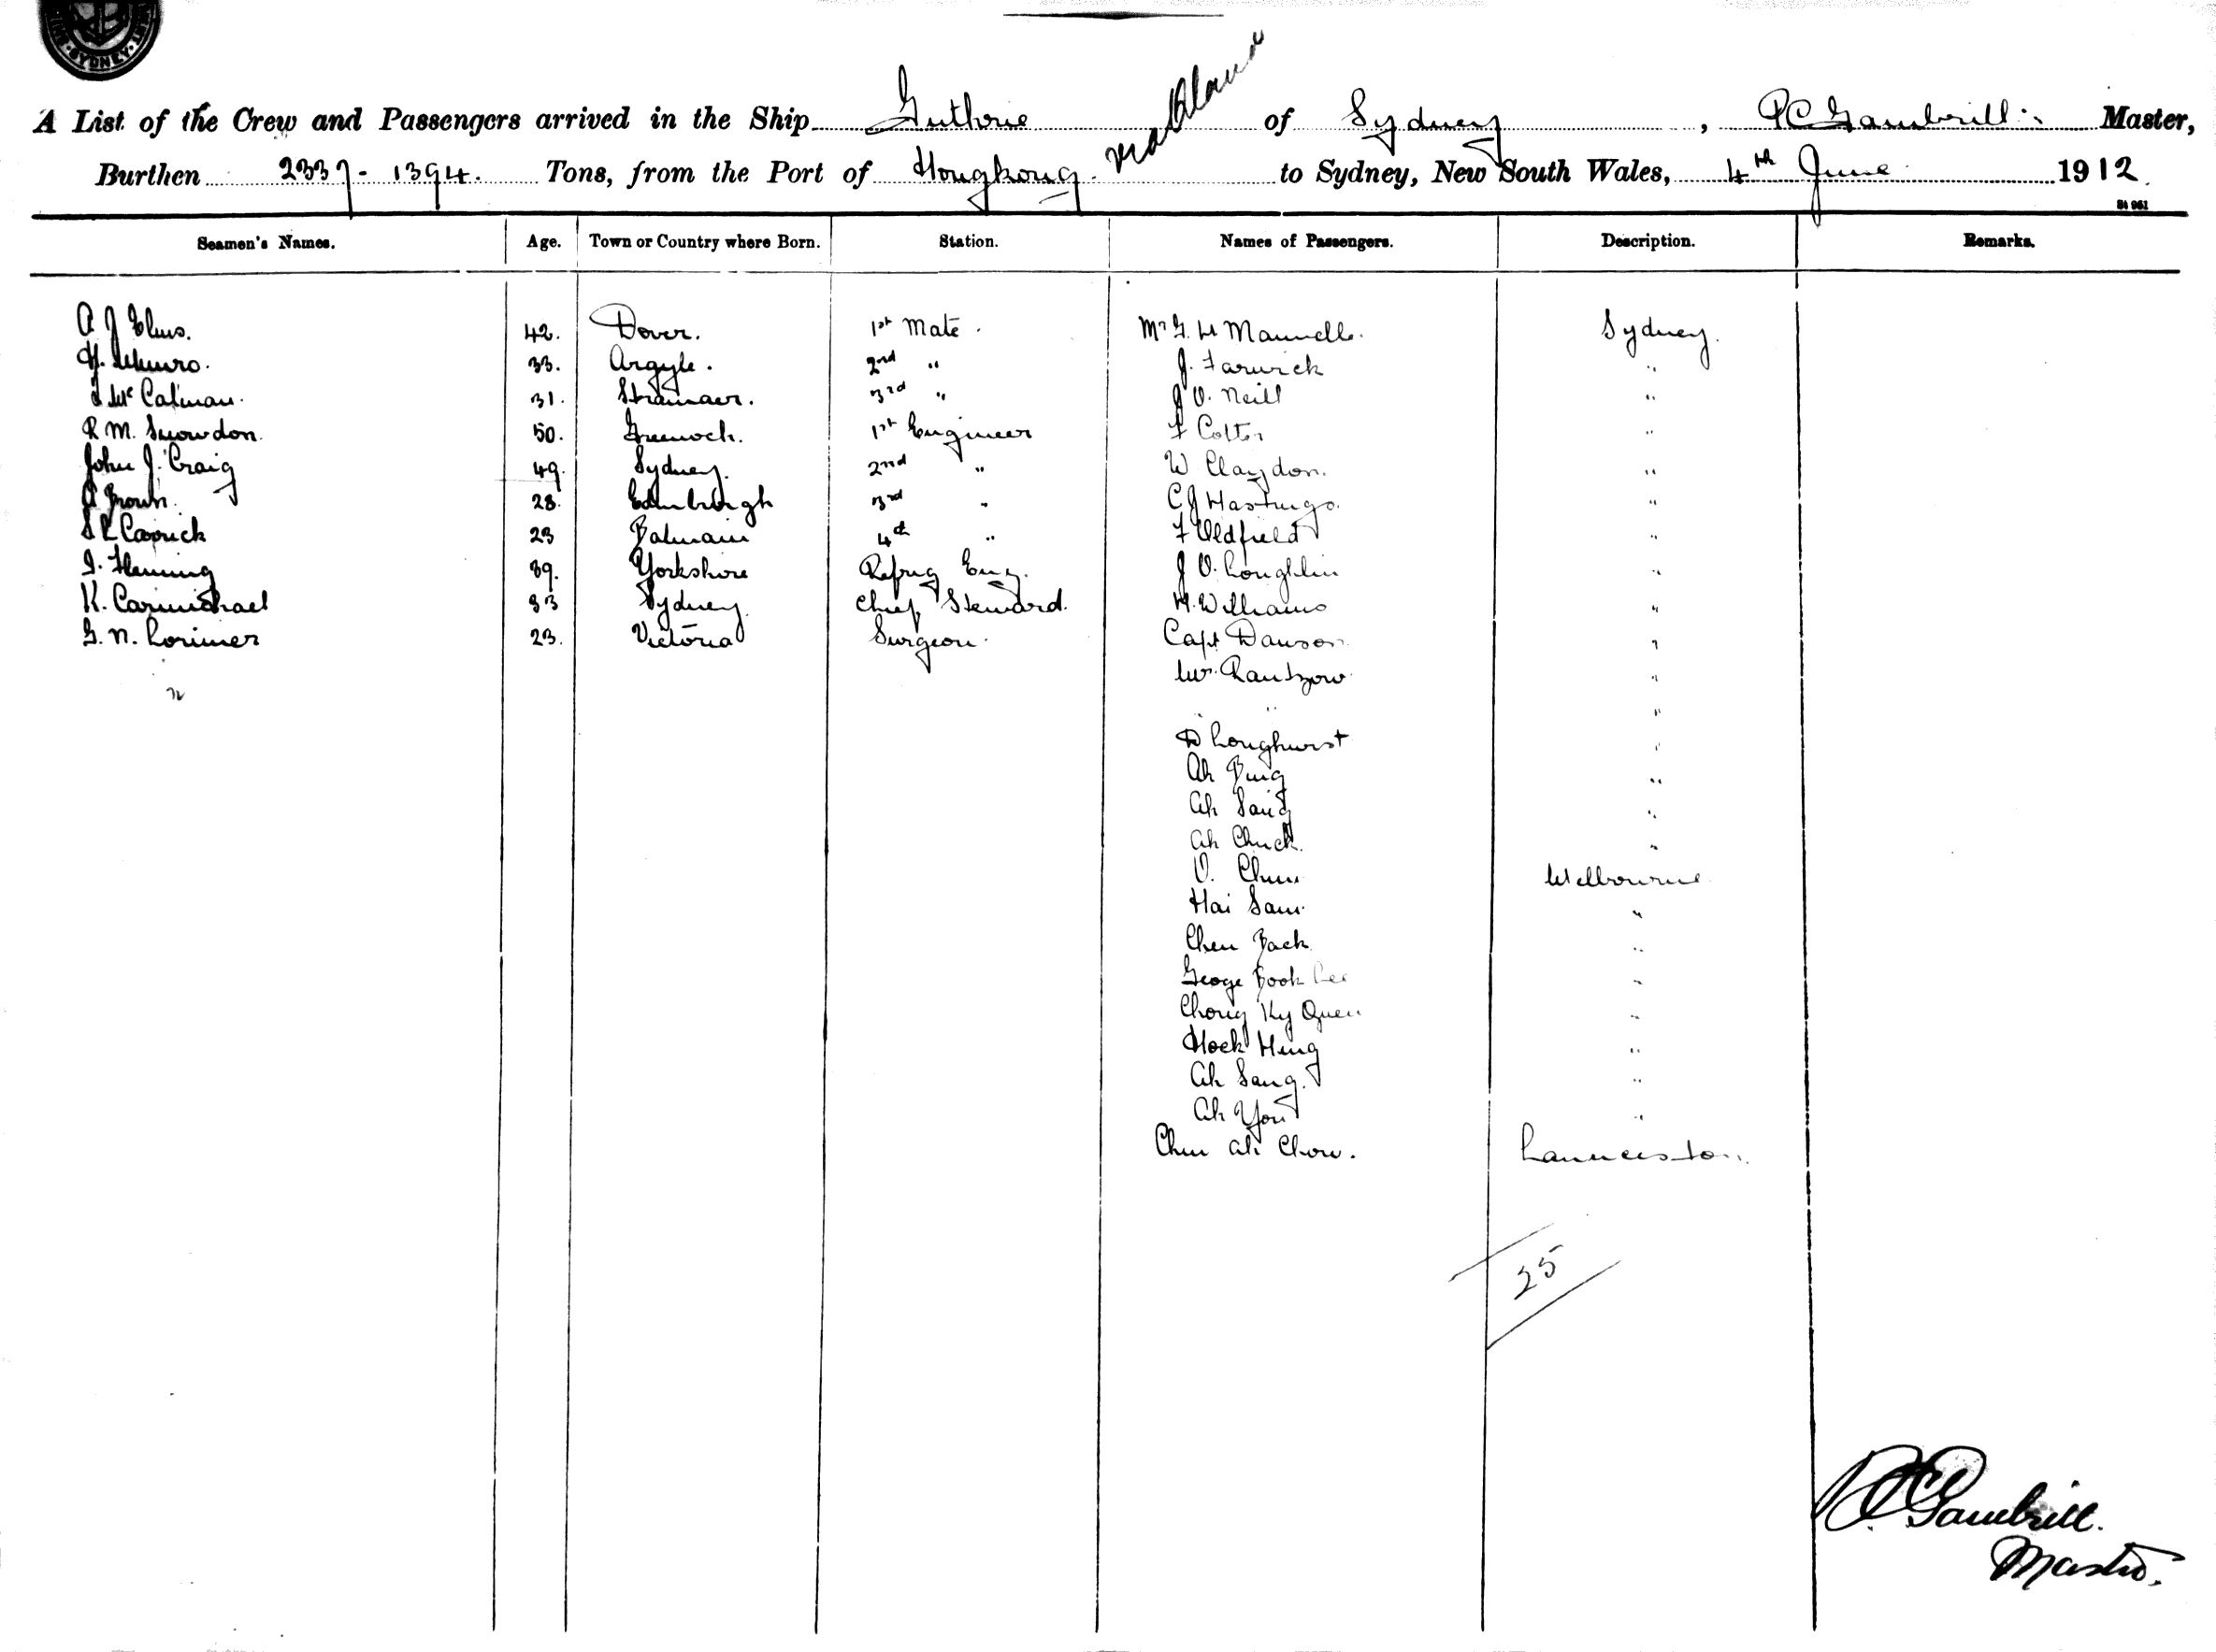 SYDNEY
A List of the Crew and Passengers arrived in the Ship Guthrie of Sydney, P C Gambrill Master,
Burthen 2337 - 1394. Tons, from the Port of Hongkong. via to Sydney, New South Wales, 4th June 1912.
Seamen's Names. Age. Town or Country where Born. Station. Names of Passengers. Description. Remarks.
A J Elms. 42. Dover. 1st Mate. Mr G. H Sydney.
H. Munro. 33. Argyle. 2nd " J. "
McCalman. 31. Stranraer. 3rd " J O. Neill "
R M. Snowdon. 50. Greenock. 1st Engineer F Colter "
John J. Craig 49. Sydney. 2nd " W Claydon. "
A Brown. 28. Edinburgh 3rd " C J Hastings. "
S L Carrick 23 Balmain 4th " F Oldfield "
I. Fleming 39. Yorkshire Refrig Eng. J O. Loughlin "
K. Carmichael 33 Sydney. Chief Steward. H. Williams "
G. N. Lorimer 23. Victoria Surgeon. Capt Dawson "
Mr. Rantzow "
" "
D Longhurst "
Ah Bing "
Ah Sang "
Ah Chuck "
O. Chun Melbourne
Hai Sam. "
Chen Back "
George Book Lee "
Chong Ky Quen "
Hock Hing "
Ah Sang. "
Ah You "
Chu Ah Chow. Launceston.
25
P C Gambrill.
Master.